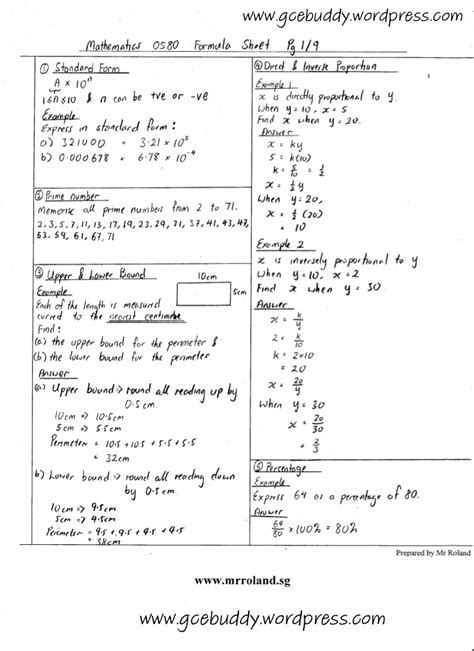 www.gcebuddy.wordpress.com
Mathematics 0580 Formula Sheet Pg 1/9
① Standard Form
A × 10ⁿ
1≤A≤10 & n can be +ve or -ve
Example
Express in standard form:
a) 321000 = 3.21 × 10⁵
b) 0.000678 = 6.78 × 10⁻⁴
② Prime number
Memorise all prime numbers from 2 to 71.
2, 3, 5, 7, 11, 13, 17, 19, 23, 29, 31, 37, 41, 43, 47,
53, 59, 61, 67, 71
③ Upper & Lower Bound
10cm
5cm
Example
Each of the length is measured
correct to the nearest centimetre
Find:
(a) the upper bound for the perimeter &
(b) the lower bound for the perimeter
Answer
(a) Upper bound => round all reading up by
0.5cm.
10cm => 10.5cm
5cm => 5.5cm
Perimeter = 10.5 + 10.5 + 5.5 + 5.5
= 32cm
b) Lower bound => round all reading down
by 0.5cm.
10cm => 9.5cm
5cm => 4.5cm
Perimeter = 9.5 + 9.5 + 4.5 + 4.5
= 28cm
④ Direct & Inverse Proportion
Example 1
x is directly proportional to y.
When y = 10, x = 5
Find x when y = 20.
Answer
x = ky
5 = k(10)
k = 5/10 = 1/2
x = 1/2 y
When y = 20,
x = 1/2 (20)
= 10
Example 2
x is inversely proportional to y
When y = 10, x = 2
Find x when y = 30
Answer
x = k/y
2 = k/10
k = 2×10
= 20
x = 20/y
When y = 30
x = 20/30
= 2/3
⑤ Percentage
Example
Express 64 as a percentage of 80.
Answer
64/80 × 100% = 80%
Prepared by Mr Roland
www.mrroland.sg
www.gcebuddy.wordpress.com